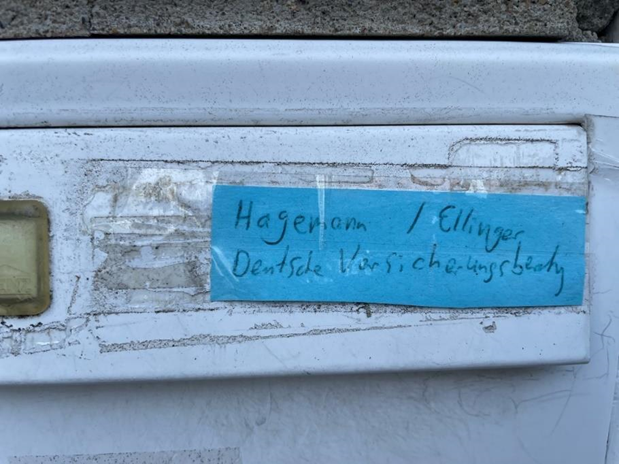 Hagemann / Ellinger
Deutsche Versicherungsberatg